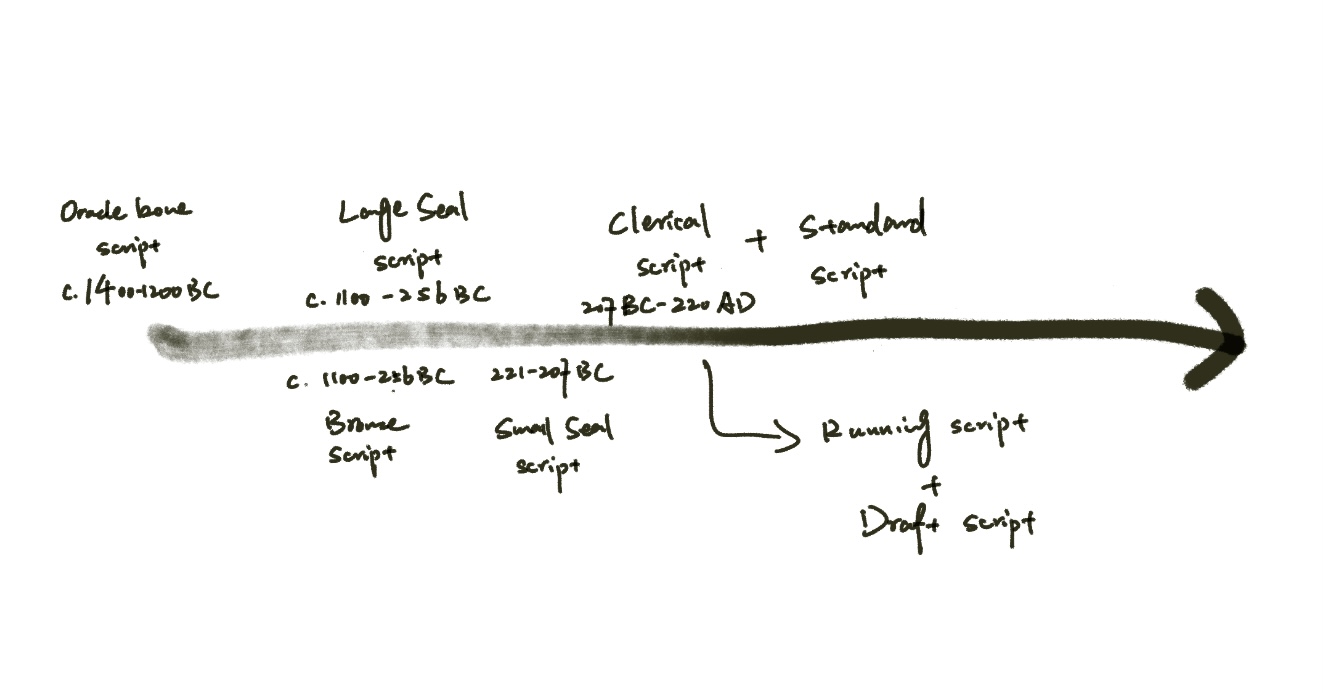 Oracle bone
script
c. 1400-1200 BC
Large Seal
script
c. 1100 - 256 BC
Clerical
script
207 BC - 220 AD
+
Standard
script
c. 1100-256 BC
Bronze
script
221-207 BC
Small Seal
script
Running script
+
Draft script